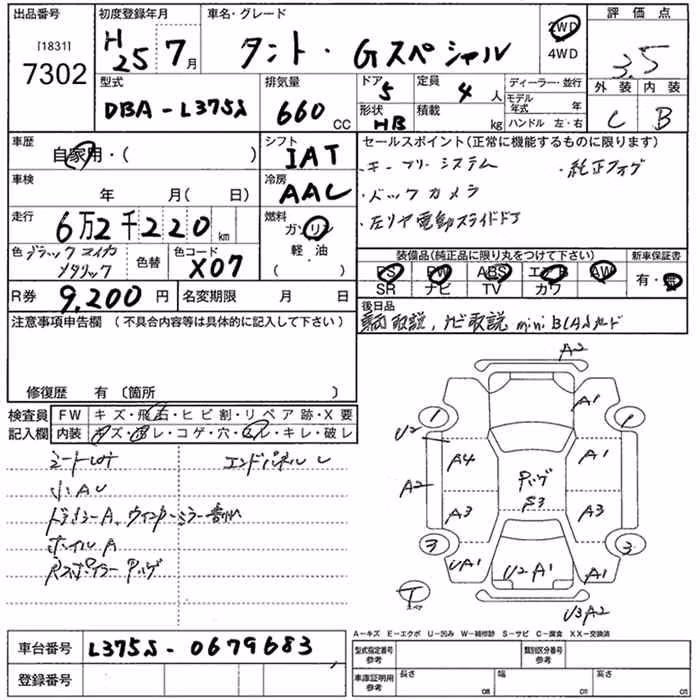 出品番号 初度登録年月 車名・グレード 2WD 評価点
[1831]
7302 H25 7月 タント・Gスペシャル 4WD 3.5
型式 排気量 ドア 5 定員 4人 ディーラー・並行 外装 内装
DBA-L375S 660 CC 形状 HB 積載 kg モデル年式 年 C B
ハンドル 左・右
車歴 自家用・( ) シフト IAT セールスポイント(正常に機能するものに限ります)
・キーフリーシステム ・純正フォグ
車検 年 月(日) 冷房 AAC ・バックカメラ
走行 6万2千220km 燃料 ガソリン ・左リヤ電動スライドドア
色 ブラックマイカメタリック 色替 色コード X07 軽・油 ( )
装備品(純正品に限り丸をつけて下さい) 新車保証書
PS PW ABS エアB AW 有・無
SR ナビ TV カワ
R券 9,200円 名変期限 月 日
後日品
注意事項申告欄(不具合内容等は具体的に記入して下さい) 取説, ナビ取説 mini B
修復歴 有〔箇所 〕
検査員 FW キズ・飛石・ヒビ割・リペア跡・X要
記入欄 内装 キズ・汚レ・コゲ・穴・スレ・キレ・破レ
シートしみ エンドパネル U
小AU
ドアミラーA、ウインカーミラー
ホイルA
Rスポイラー
A2
A1
1 1
U2
A4 A1
A2
S3
A3 A3
3 3
UA1 U2 A1 A1
T
U3A2
A-キズ E-エクボ U-凹み W-補修跡 S-サビ C-腐食 XX-交換済
車台番号 L375S-0679683 型式指定番号 参考 類別区分番号 参考
登録番号 車庫証明用 参考 長さ cm 幅 cm 高さ cm